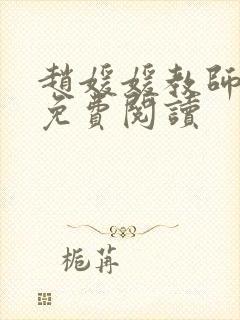 趙媛媛教師
免費閱讀
栀苒